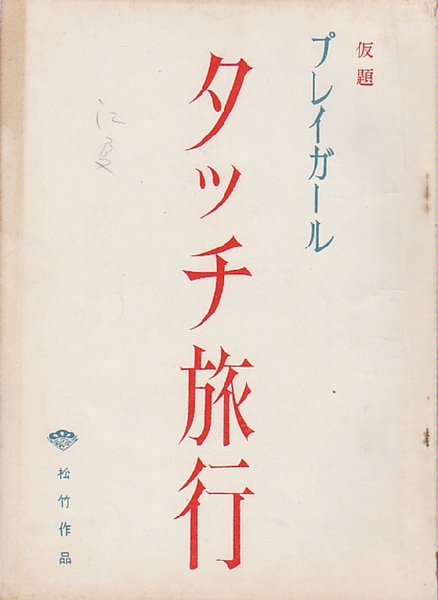 仮題
プレイガール
タッチ旅行
松竹作品